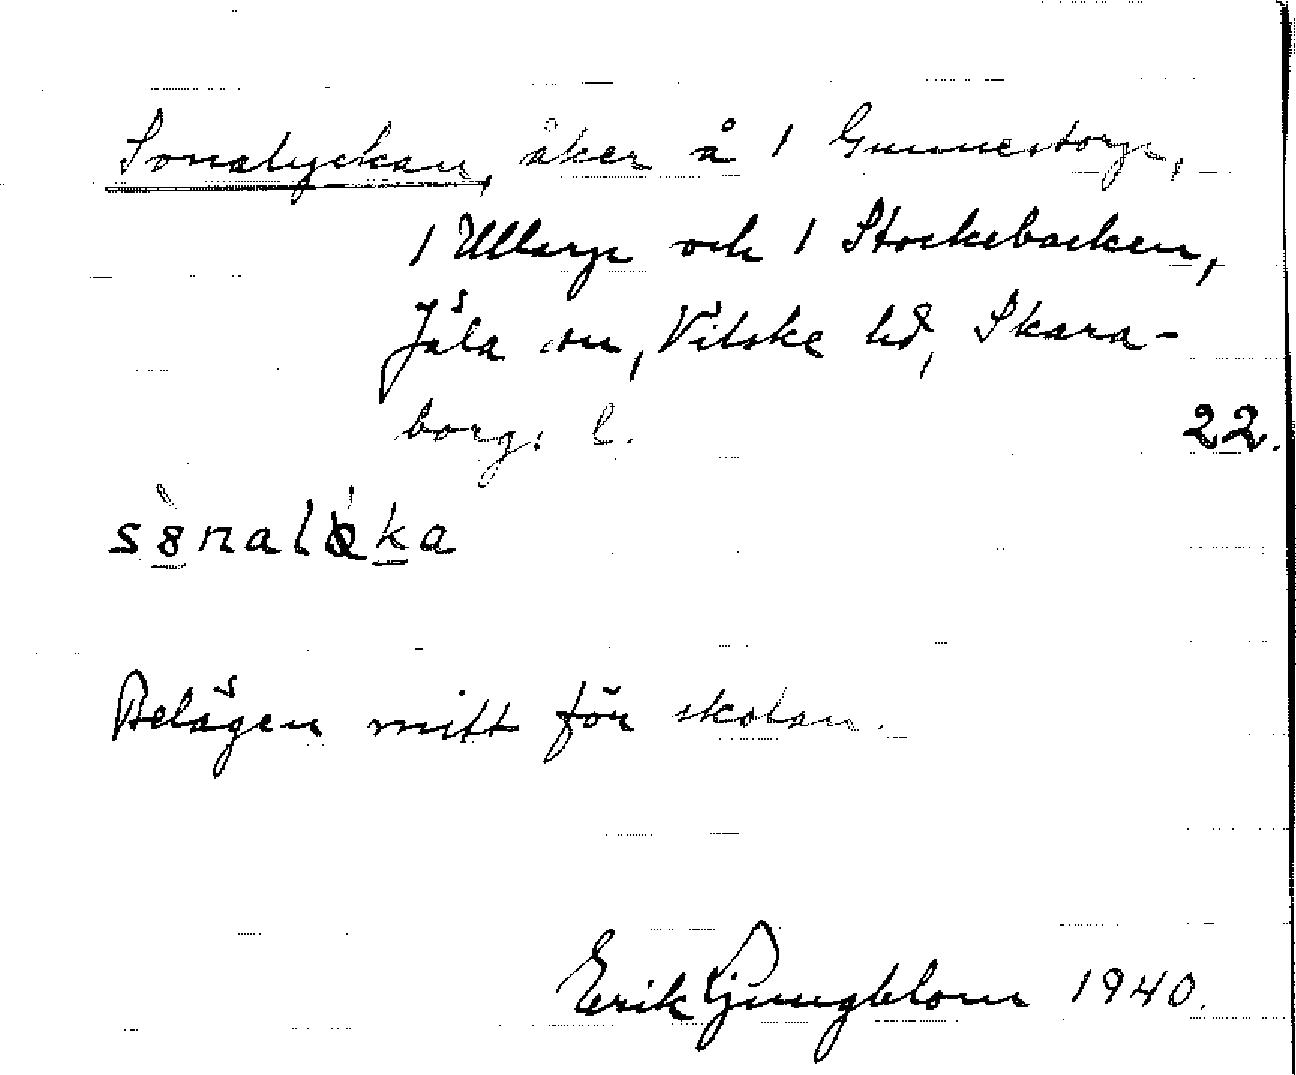 Sonalyckan, åker å 1 Gunnestorp,
1 Ullarp och 1 Stockebacken,
Jäla sn, Vilske hd, Skara-
borgs l. 22.
Belägen mitt för skolan.
Erik Ljungblom 1940.